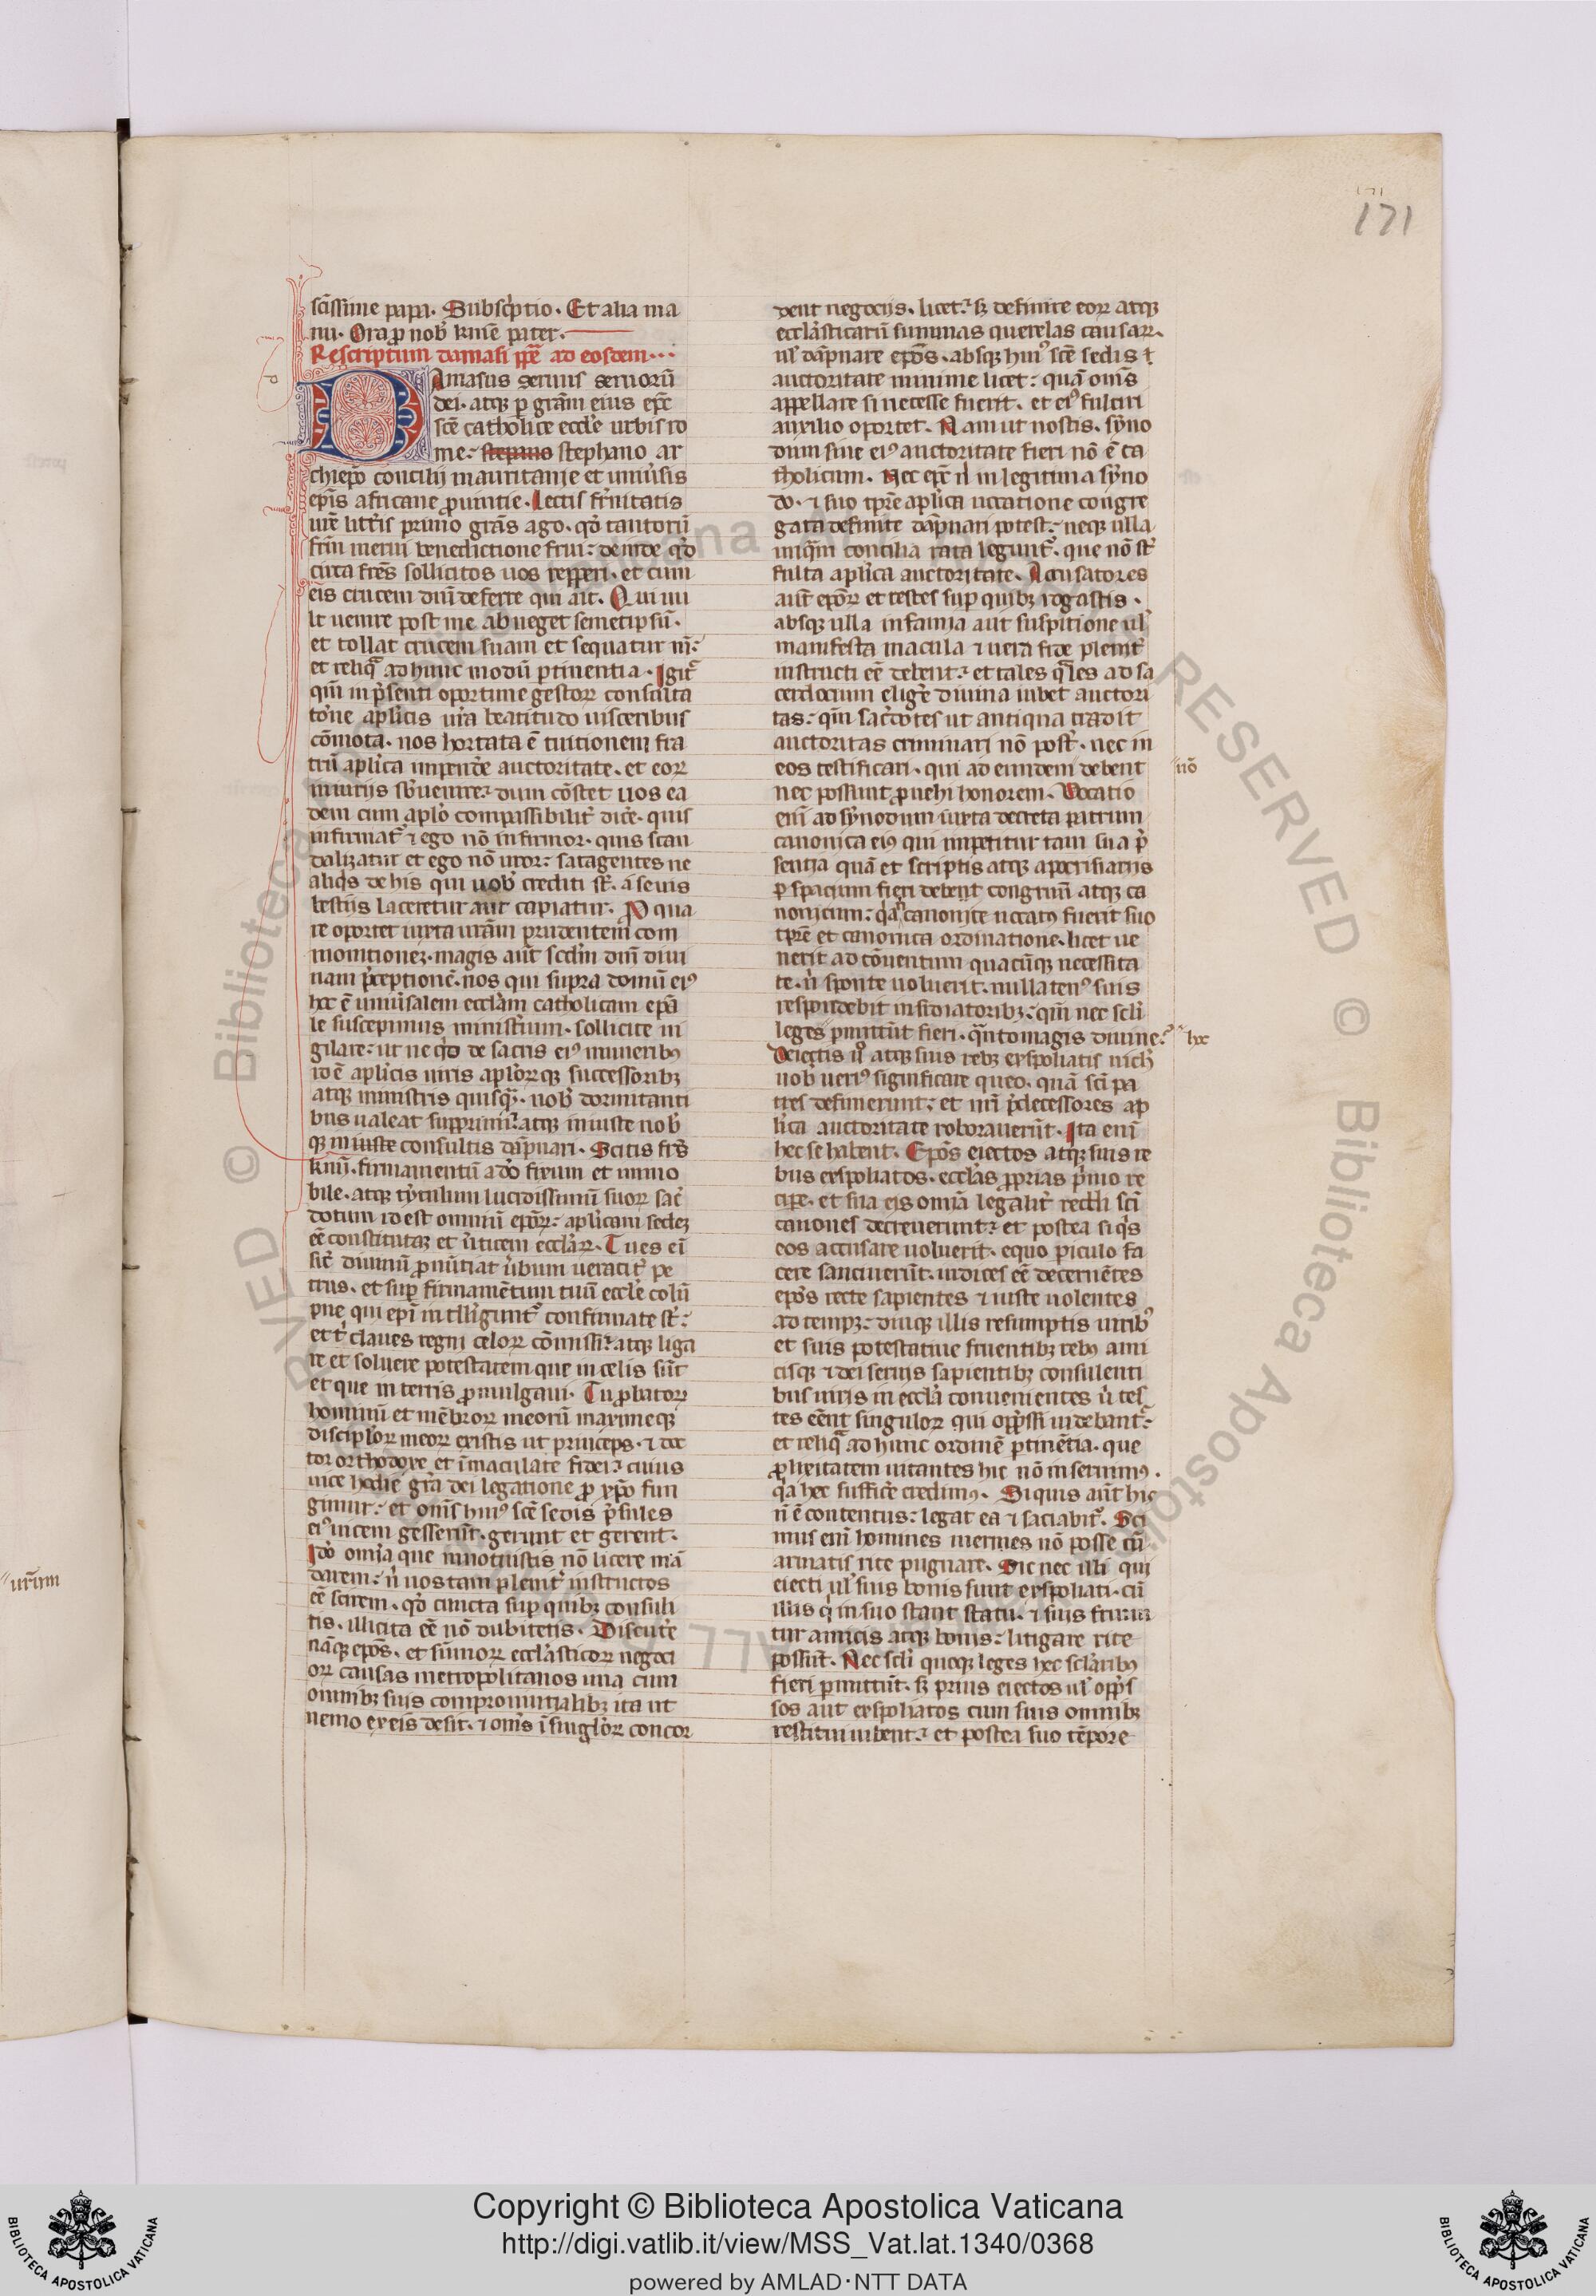 171
171
scissime papa. Subscͥptio. Et alia ma
nu. Ora ꝓ nobˀ kmē pater.
Rescriptum damasi ꝑpe ad eosdem
Amasus seruus seruorū
dei. atqꝫ ꝑ grām eius epē
scē catholice eccl'e urbis ro
me: stepano stephano ar
chiepō concilij mauritanie et uniuˀsis
epīs africane ꝓuintie. Lectis frˀnitatis
urē litt'is primo grās ago. qͦ tantorū
frm̄ merui benedictione frui: deinde qͦd
circa frēs sollicitos uos repperi. et cum
eis crucem dnī deferre qui ait. Qui uu
lt uenire post me abneget semetipsū.
et tollat crucem suam et sequatur m̄:
et reliqͣ ad hunc modū ꝑtinentia. Igit᷑
qm̄ in pˀsenti oportune gestoꝝ consulta
tōne apl'icis urā beatitudo uisceribus
cōmota. nos hortata ē tuitionem fra
trū apl'ica impendˀe auctoritate. et eoꝝ
iniuriis sbˀuenire: dum cōstet uos ea
dem cum apl'o compassibilit᷑ dicˀe. quis
infirmat᷑ ⁊ ego nō infirmor. quis scan
dalizatur et ego nō uror: satagentes ne
aliqͥs de his qui uobˀ crediti st᷑. a seuis
bestijs laceretur aut capiatur. N qua
re oportet iuxta urām prudentem com
monitioneꝫ. magis aūt scdm̄ dnī diui
nam pˀceptionē. nos qui supra domū eiꝰ
hoc ē uniuˀsalem eccl'am catholicam epā
le suscepimus ministˀium. sollicite ui
gilare: ut ne qͦd de sacris eiꝰ muneribꝰ
id ē apl'icis uiris apl'oꝝqꝫ successoribꝫ
atqꝫ ministris quisqͣ. nobˀ dormitanti
bus ualeat supprimi: atqꝫ iniuste nobˀ
qꝫ iniuste consultis dāpnari. Scitis frēs
kmī. firmamentū a dō fixum et immo
bile. atqꝫ tytulum lucidissimū suoꝝ sacˀ
dotum id est omniū epōꝝ: apl'icam sedeꝫ
eē constitutaꝫ et uˀticem eccl'aꝝ. Tu es ei
sic᷑ diuinū ꝓnūtiat uˀbum ueracit᷑ pe
trus. et suꝑ firmamētum tuū eccl'e colū
pne qui epī intll'igunt᷑ confirmate st᷑:
et tˀ claues regni celoꝝ cōmissi: atqꝫ liga
re et soluere potestatem que in celis sūt
et que in terris ꝓmulgaui. Tu ꝓbatoꝝ
hominū et mēbroꝝ meorū maximeqꝫ
discipl'oꝝ meoꝝ existis ut princeps. ⁊ doc
tor orthodoxe et īmaculate fidei: cuius
uice hodie grā dei legatione ꝓ xpō fun
gimur: et oms huiꝰ scē sedis pˀsules
eiꝰ uicem gesserūt. gerunt et gerent.
Idō omīa que innotuistis nō licere mā
darem: nˀ uos tam plenit᷑ instructos
eē scirem. qͦ cuncta suꝑ quibꝫ consuli
tis. illicita eē nō dubitetis. Discutˀe
nāqꝫ epōs. et sūmoꝝ eccl'asticoꝝ negoci
oꝝ causas metropolitanos una cum
omnibꝫ suis comprouintialibꝫ ita ut
nemo ex eis desit. ⁊ oms ī singl'oꝝ concor
dent negocijs. licet: sꝫ definite eoꝝ atqꝫ
eccl'asticarū summas querelas causaꝝ.
ul' dāpnare epōs. absqꝫ huiꝰ scē sedis
auctoritate minime licet: quā oms
appellare si necesse fuerit. et eiꝰ fulciri
auxilio oportet. Nam ut nostis. syno
dum sine eiꝰ auctoritate fieri nō ē ca
tholicum. Nec epē nˀ in legitima syno
do. ⁊ suo tpr̄e apl'ica uocatione congre
gata definite dāpnari potest: neqꝫ ulla
unqͣm concilia rata legunt᷑. que nō st᷑
fulta apl'ica auctoritate. Accusatores
aūt epōꝝ et testes suꝑ quibꝫ rogastis.
absqꝫ ulla infamia aut suspitione ul'
manifesta macula ⁊ uera fide plenit᷑
instructi eē debent: et tales qͣles ad sa
cerdocium eligˀe diuina iubet auctori
tas: qm̄ sacˀdotes ut antiqua tradit
auctoritas criminari nō post᷑. nec in
eos testificari. qui ad eundem debent
nō
nec possunt ꝓuehi honorem. Vocatio
enī ad synodum iuxta decreta patrum
canonica eiꝰ qui impetitur tam sua pˀ
sentia quā et scriptis atqꝫ apocrisiarijs
ꝑ spacium fieri debent congruū atqꝫ ca
nonicum: qͣ nˀ canonice uocatꝰ fuerit suo
tpr̄e et canonica ordinatione. licet ue
nerit ad cōuentum quacūqꝫ necessita
te. nˀ sponte uoluerit. nullatenꝰ suis
respondebit insidiatoribꝫ: qm̄ nec scl'i
leges ꝑmittūt fieri. qͣnto magis diuine:
hoc
Deiectis uͦ atqꝫ suis rebꝫ exspoliatis nichˀ
uobˀ ueriꝰ significare queo. quā sci pa
tres definerunt: et nrī pˀdecessores ap
l'ica auctoritate roborauerūt. Ita enī
hec se habent. Epōs eiectos atqꝫ suis re
bus exspoliatos. eccl'as ꝓprias pͥmo re
ciꝑe. et sua eis omīa legalit᷑ reddi sci
canones decreuerunt: et postea si qͥs
eos accusare uoluerit. equo ꝑiculo fa
cere sanciuerūt. iudices eē decernētes
epōs recte sapientes ⁊ iuste uolentes
ad tempꝫ: diuqꝫ illis resumptis uiribꝰ
et suis potestatiue fruentibꝫ rebꝰ ami
cisqꝫ ⁊ dei seruis sapientibꝫ consulenti
bus uiris in eccl'a conuenientes uˀ tes
tes eēnt singuloꝝ qui oppˀssi uidebant᷑:
et reliqͣ ad hunc ordinē ꝑtinētia. que
ꝓlixitatem uitantes hic nō inseruimꝰ.
qͣ hec sufficˀe credimꝰ. Si quis aūt hic
nˀ ē contentus: legat ea ⁊ saciabit᷑. Sci
mus enī homines inermes nō posse cū
armatis rite pugnare. Sic nec illi qui
eiecti ul' suis bonis sunt exspoliati. cū
illis qͥ in suo stant statu. ⁊ suis fruun
tur amicis atqꝫ bonis: litigare rite
possūt. Nec scl'i quoqꝫ leges hec scl'aribꝰ
fieri ꝑmittūt. sꝫ prius eiectos ul' oppˀs
sos aut exspoliatos cum suis omnibꝫ
restitui iubent: et postea suo tēpore
urīnm
Copyright © Biblioteca Apostolica Vaticana
http://digi.vatlib.it/view/MSS_Vat.lat.1340/0368
powered by AMLAD·NTT DATA
BIBLIOTECA APOSTOLICA VATICANA
BIBLIOTECA APOSTOLICA VATICANA